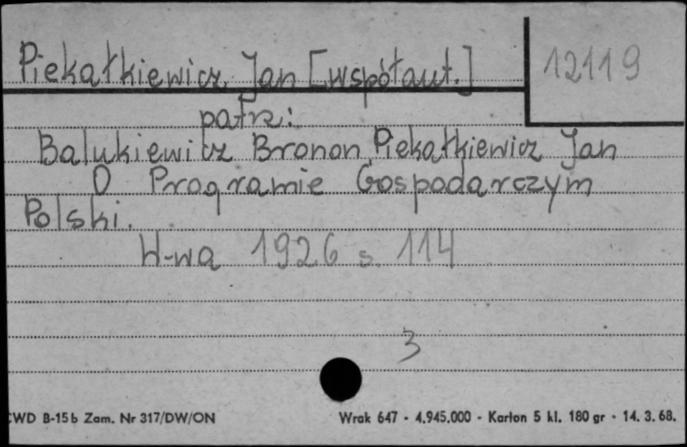 Piekałkiewicz, Jan [współaut.]
12119
patrz:
Balukiewicz Bronon, Piekałkiewicz Jan
O Programie Gospodarczym
Polski.
W-wa 1926 s. 114
3
CWD B-15b Zam. Nr 317/DW/ON
Wrak 647 - 4.945.000 - Karton 5 kl. 180 gr - 14. 3. 68.